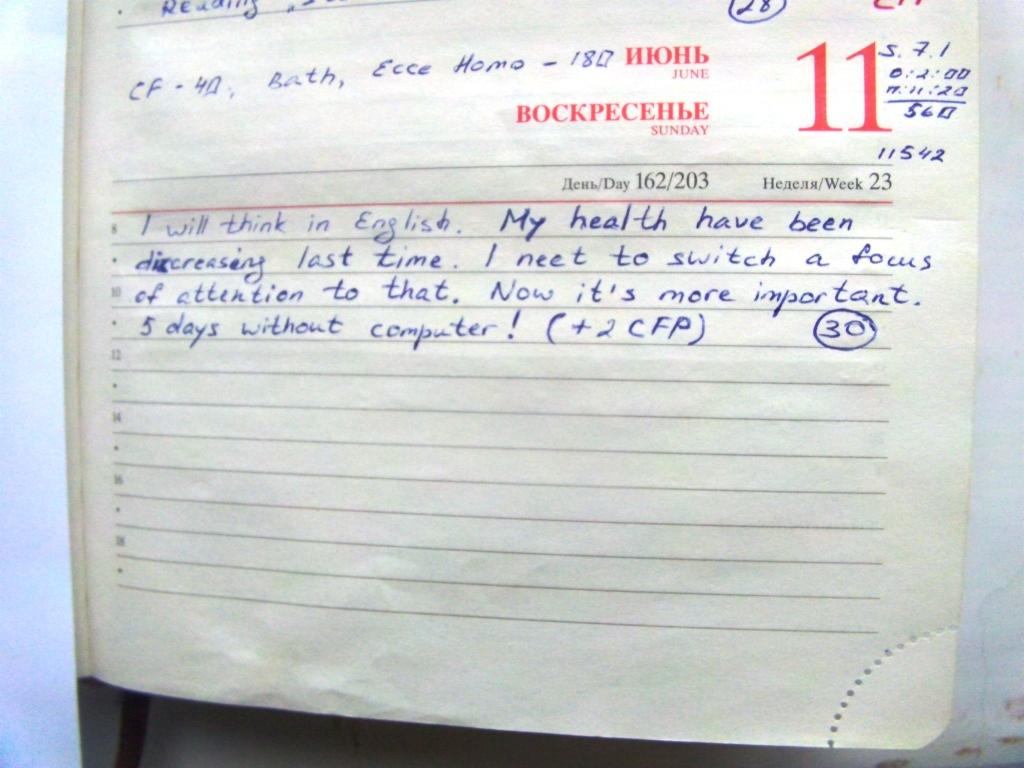 Reading
28
CF - 4П, Bath, Ecce Homo - 18П
ИЮНЬ
JUNE
11
ВОСКРЕСЕНЬЕ
SUNDAY
5. 7. 1
0:2:00
56П
11542
День/Day 162/203
Неделя/Week 23
8 I will think in English. My health have been
discreasing last time. I neet to switch a focus
10 of attention to that. Now it's more important.
5 days without computer! (+2 CFP) 30
12
14
16
18